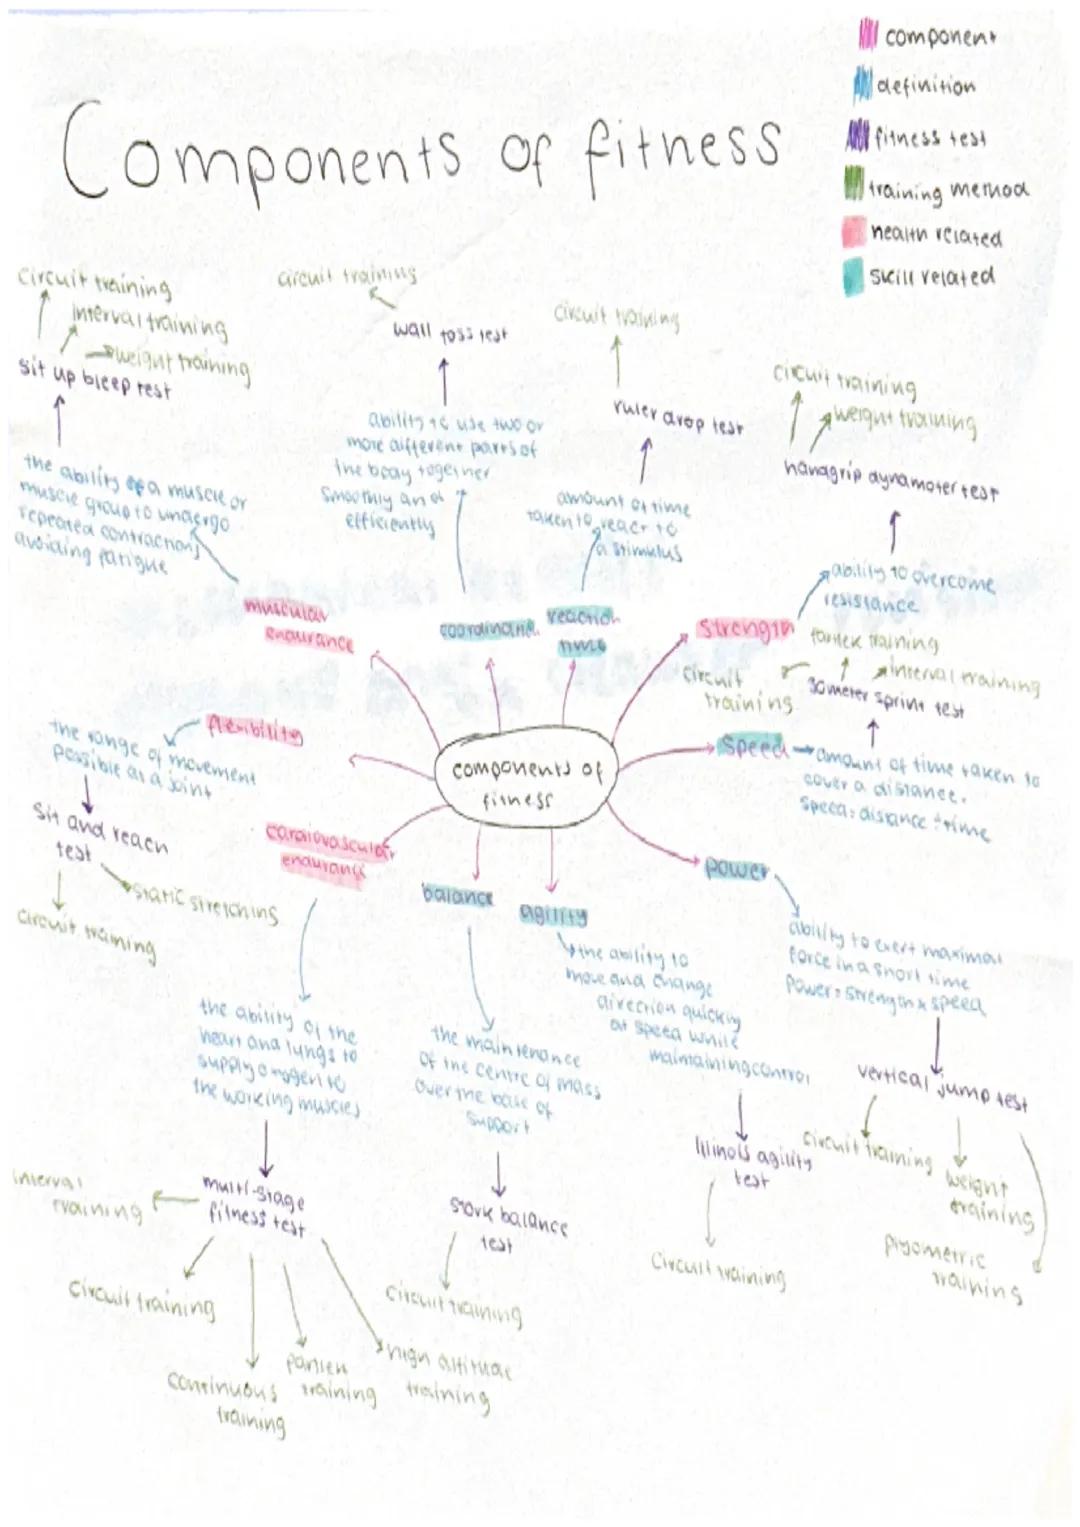 component
definition
fitness test
training method
health related
skill related
Components of fitness
circuit training
interval training
weight training
sit up bleep test
the ability of a muscle or
muscle group to undergo
repeated contractions
avoiding fatigue
muscular
endurance
circuit training
wall toss test
ability to use two or
more different parts of
the body together
smoothly and
efficiently
coordination
circuit training
ruler drop test
amount of time
taken to react to
a stimulus
reaction
time
circuit training
weight training
handgrip dynamoter test
ability to overcome
resistance
strength
fartlek training
interval training
circuit
training
30meter sprint test
speed
amount of time taken to
cover a distance.
speed = distance ÷ time
components of
fitness
flexibility
the range of movement
possible at a joint
sit and reach
test
static stretching
circuit training
cardiovascular
endurance
the ability of the
heart and lungs to
supply oxygen to
the working muscles
multi-stage
fitness test
interval
training
circuit training
continuous
training
fartlek
training
high altitude
training
balance
the maintenance
of the centre of mass
over the base of
support
stork balance
test
circuit training
agility
the ability to
move and change
direction quickly
at speed while
maintaining control
Illinois agility
test
circuit training
power
ability to exert maximal
force in a short time
power = strength x speed
vertical jump test
circuit training
weight
training
plyometric
training